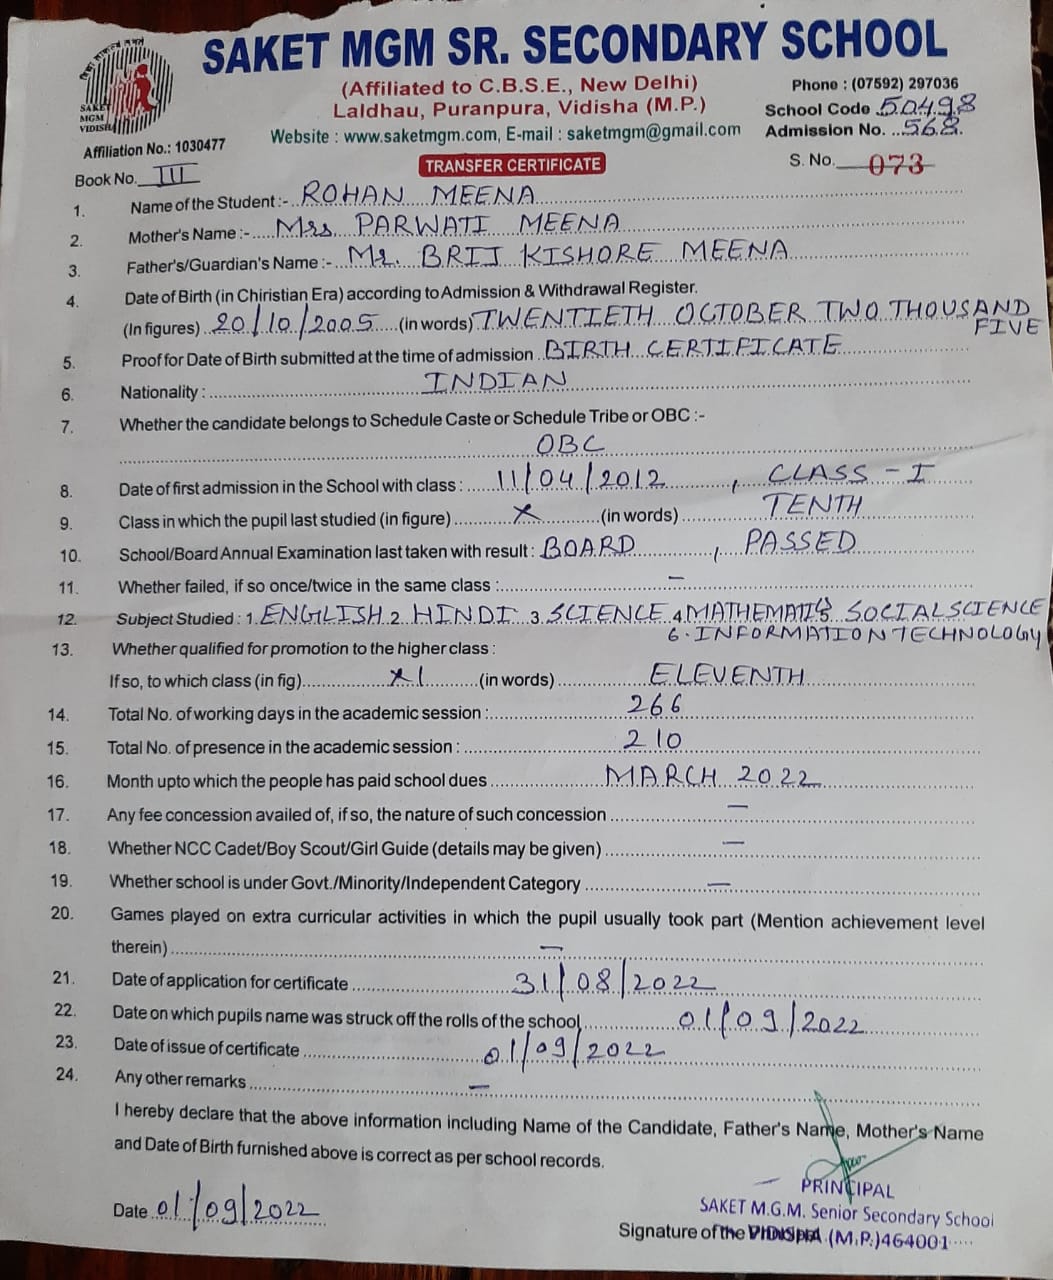 SAKET MGM SR. SECONDARY SCHOOL
(Affiliated to C.B.S.E., New Delhi)
Laldhau, Puranpura, Vidisha (M.P.)
Website : www.saketmgm.com, E-mail : saketmgm@gmail.com
Phone : (07592) 297036
School Code 50498
Admission No. ..568.
SAKET
MGM
VIDISHA
Affiliation No.: 1030477
Book No. III
TRANSFER CERTIFICATE
S. No. 073
1. Name of the Student :- ROHAN MEENA
2. Mother's Name :- Mrs PARWATI MEENA
3. Father's/Guardian's Name :- Mr. BRIJ KISHORE MEENA
4. Date of Birth (in Chiristian Era) according to Admission & Withdrawal Register.
(In figures) 20/10/2005 (in words) TWENTIETH OCTOBER TWO THOUSAND
FIVE
5. Proof for Date of Birth submitted at the time of admission BIRTH CERTIFICATE
6. Nationality : INDIAN
7. Whether the candidate belongs to Schedule Caste or Schedule Tribe or OBC :-
OBC
8. Date of first admission in the School with class : 11/04/2012, CLASS - I
9. Class in which the pupil last studied (in figure) X (in words) TENTH
10. School/Board Annual Examination last taken with result : BOARD, PASSED
11. Whether failed, if so once/twice in the same class : —
12. Subject Studied : 1. ENGLISH 2. HINDI 3. SCIENCE 4. MATHEMATICS 5. SOCIAL SCIENCE
6. INFORMATION TECHNOLOGY
13. Whether qualified for promotion to the higher class :
If so, to which class (in fig) XI (in words) ELEVENTH
14. Total No. of working days in the academic session : 266
15. Total No. of presence in the academic session : 210
16. Month upto which the people has paid school dues MARCH 2022
17. Any fee concession availed of, if so, the nature of such concession —
18. Whether NCC Cadet/Boy Scout/Girl Guide (details may be given) —
19. Whether school is under Govt./Minority/Independent Category —
20. Games played on extra curricular activities in which the pupil usually took part (Mention achievement level
therein) —
21. Date of application for certificate 31/08/2022
22. Date on which pupils name was struck off the rolls of the school 01/09/2022
23. Date of issue of certificate 01/09/2022
24. Any other remarks —
I hereby declare that the above information including Name of the Candidate, Father's Name, Mother's Name
and Date of Birth furnished above is correct as per school records.
PRINCIPAL
SAKET M.G.M. Senior Secondary School
Date 01/09/2022
Signature of the VIDISHA (M.P.) 464001